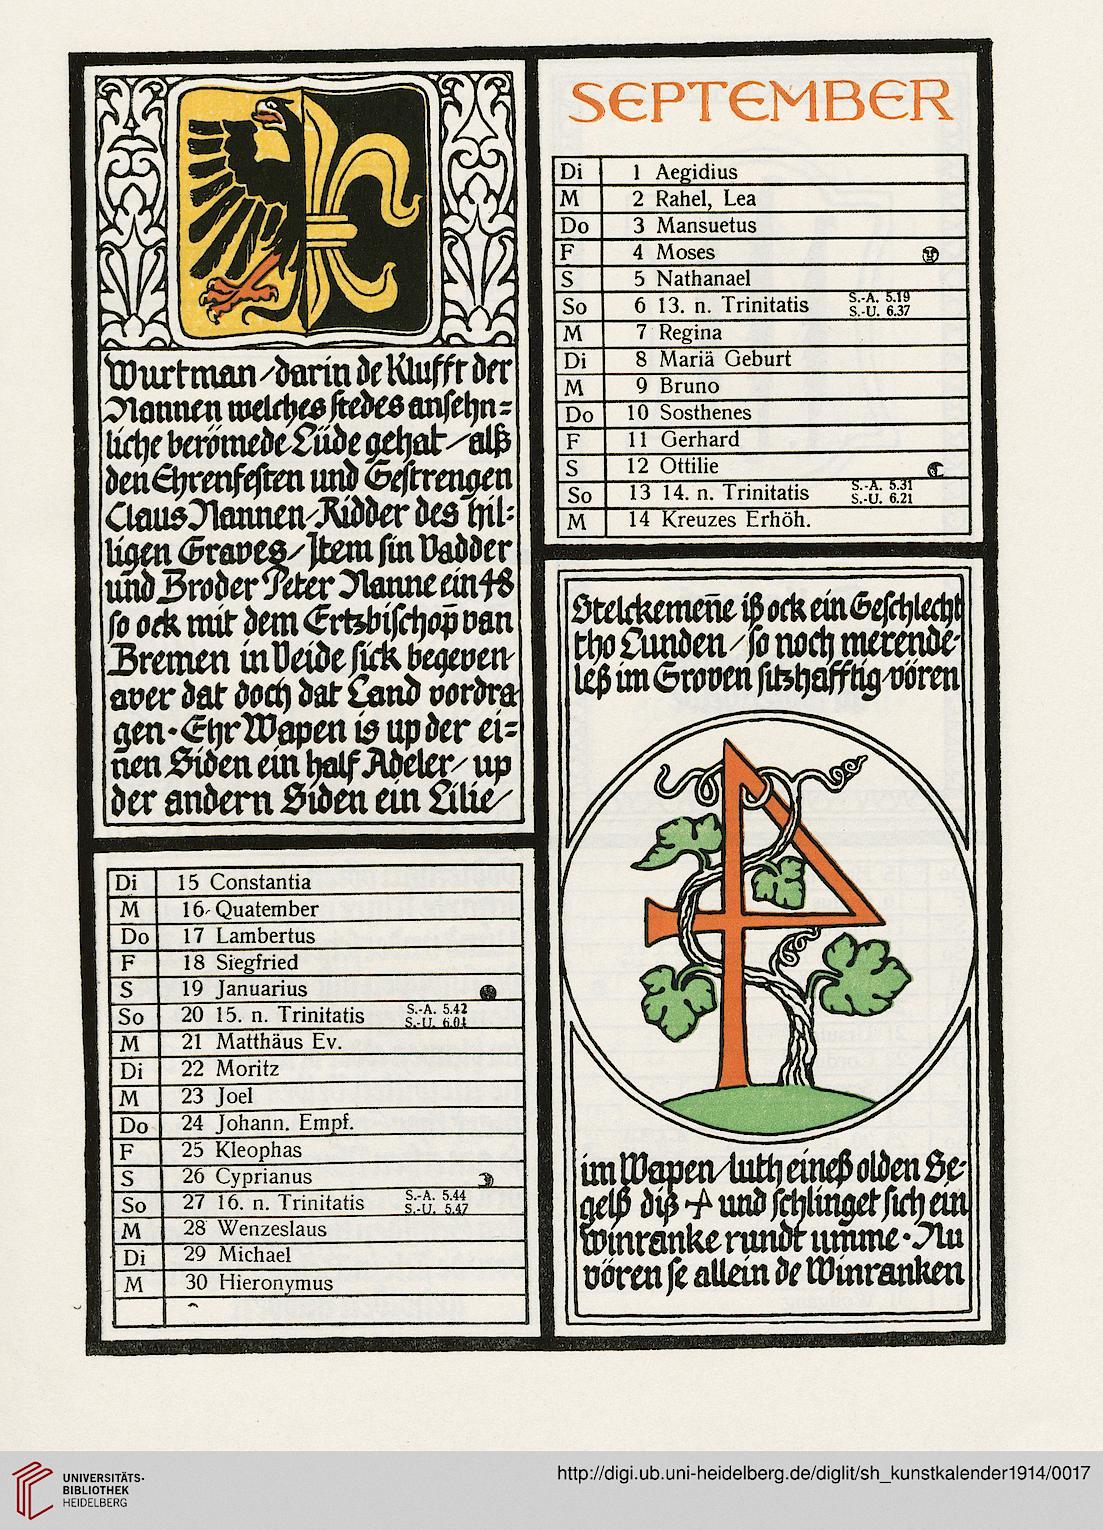 Wurtman/darin de Klufft der
Nannen welches stedes ansehn=
liche berömede Lüde gehat/alß
den Ehrenfesten und Gestrengen
Claus Nannen/Ridder des hil=
ligen Graves/Item sin Vadder
und Broder Peter Nanne ein 48
so ock mit dem Ertzbischop̄ van
Bremen in Veide sick begeven/
aver dat doch dat Land vordra
gen· Ehr Wapen is up der ei=
nen Siden ein half Adeler/ up
der andern Siden ein Lilie/
SEPTEMBER
Di 1 Aegidius
M 2 Rahel, Lea
Do 3 Mansuetus
F 4 Moses
S 5 Nathanael
So 6 13. n. Trinitatis S.-A. 5.19
S.-U. 6.37
M 7 Regina
Di 8 Mariä Geburt
M 9 Bruno
Do 10 Sosthenes
F 11 Gerhard
S 12 Ottilie
So 13 14. n. Trinitatis S.-A. 5.31
S.-U. 6.21
M 14 Kreuzes Erhöh.
Di 15 Constantia
M 16 Quatember
Do 17 Lambertus
F 18 Siegfried
S 19 Januarius
So 20 15. n. Trinitatis S.-A. 5.42
S.-U. 6.04
M 21 Matthäus Ev.
Di 22 Moritz
M 23 Joel
Do 24 Johann. Empf.
F 25 Kleophas
S 26 Cyprianus
So 27 16. n. Trinitatis S.-A. 5.44
S.-U. 5.47
M 28 Wenzeslaus
Di 29 Michael
M 30 Hieronymus
Stelckemen̄e iß ock ein Geschlecht
tho Lunden/so noch merende=
leß im Groven sitzhafftig/vören
im Wapen/luth eineß olden Se=
gelß diß und schlinget sich ein
Winranke rundt umme· Nu
vören se allein de Winranken
UNIVERSITÄTS-
BIBLIOTHEK
HEIDELBERG
http://digi.ub.uni-heidelberg.de/diglit/sh_kunstkalender1914/0017